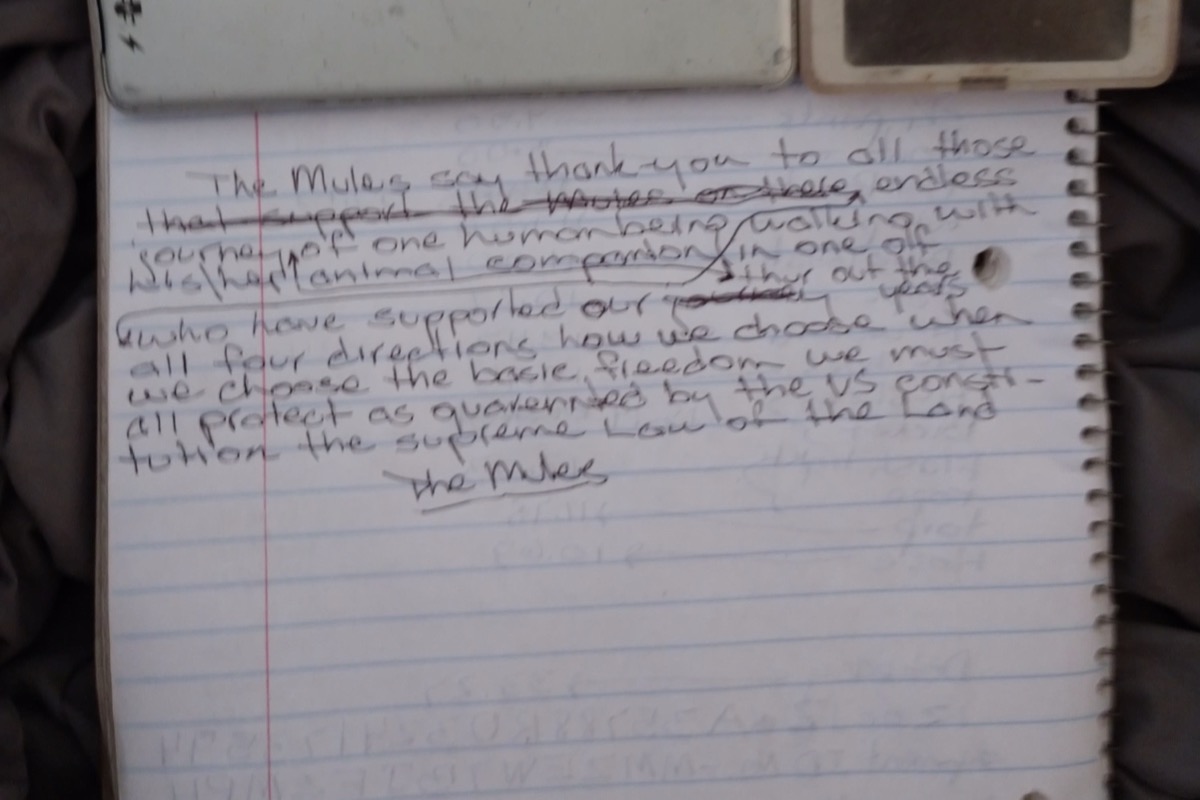 The Mules say thank you to all those
that support the Mules on there, endless
journey of one human being walking with
his/her animal companion in one off
who have supported our journey thur out the years
all four directions how we choose when
we choose the basic freedom we must
all protect as guarenteed by the US consti-
tution the supreme Law of the Land
The Mules